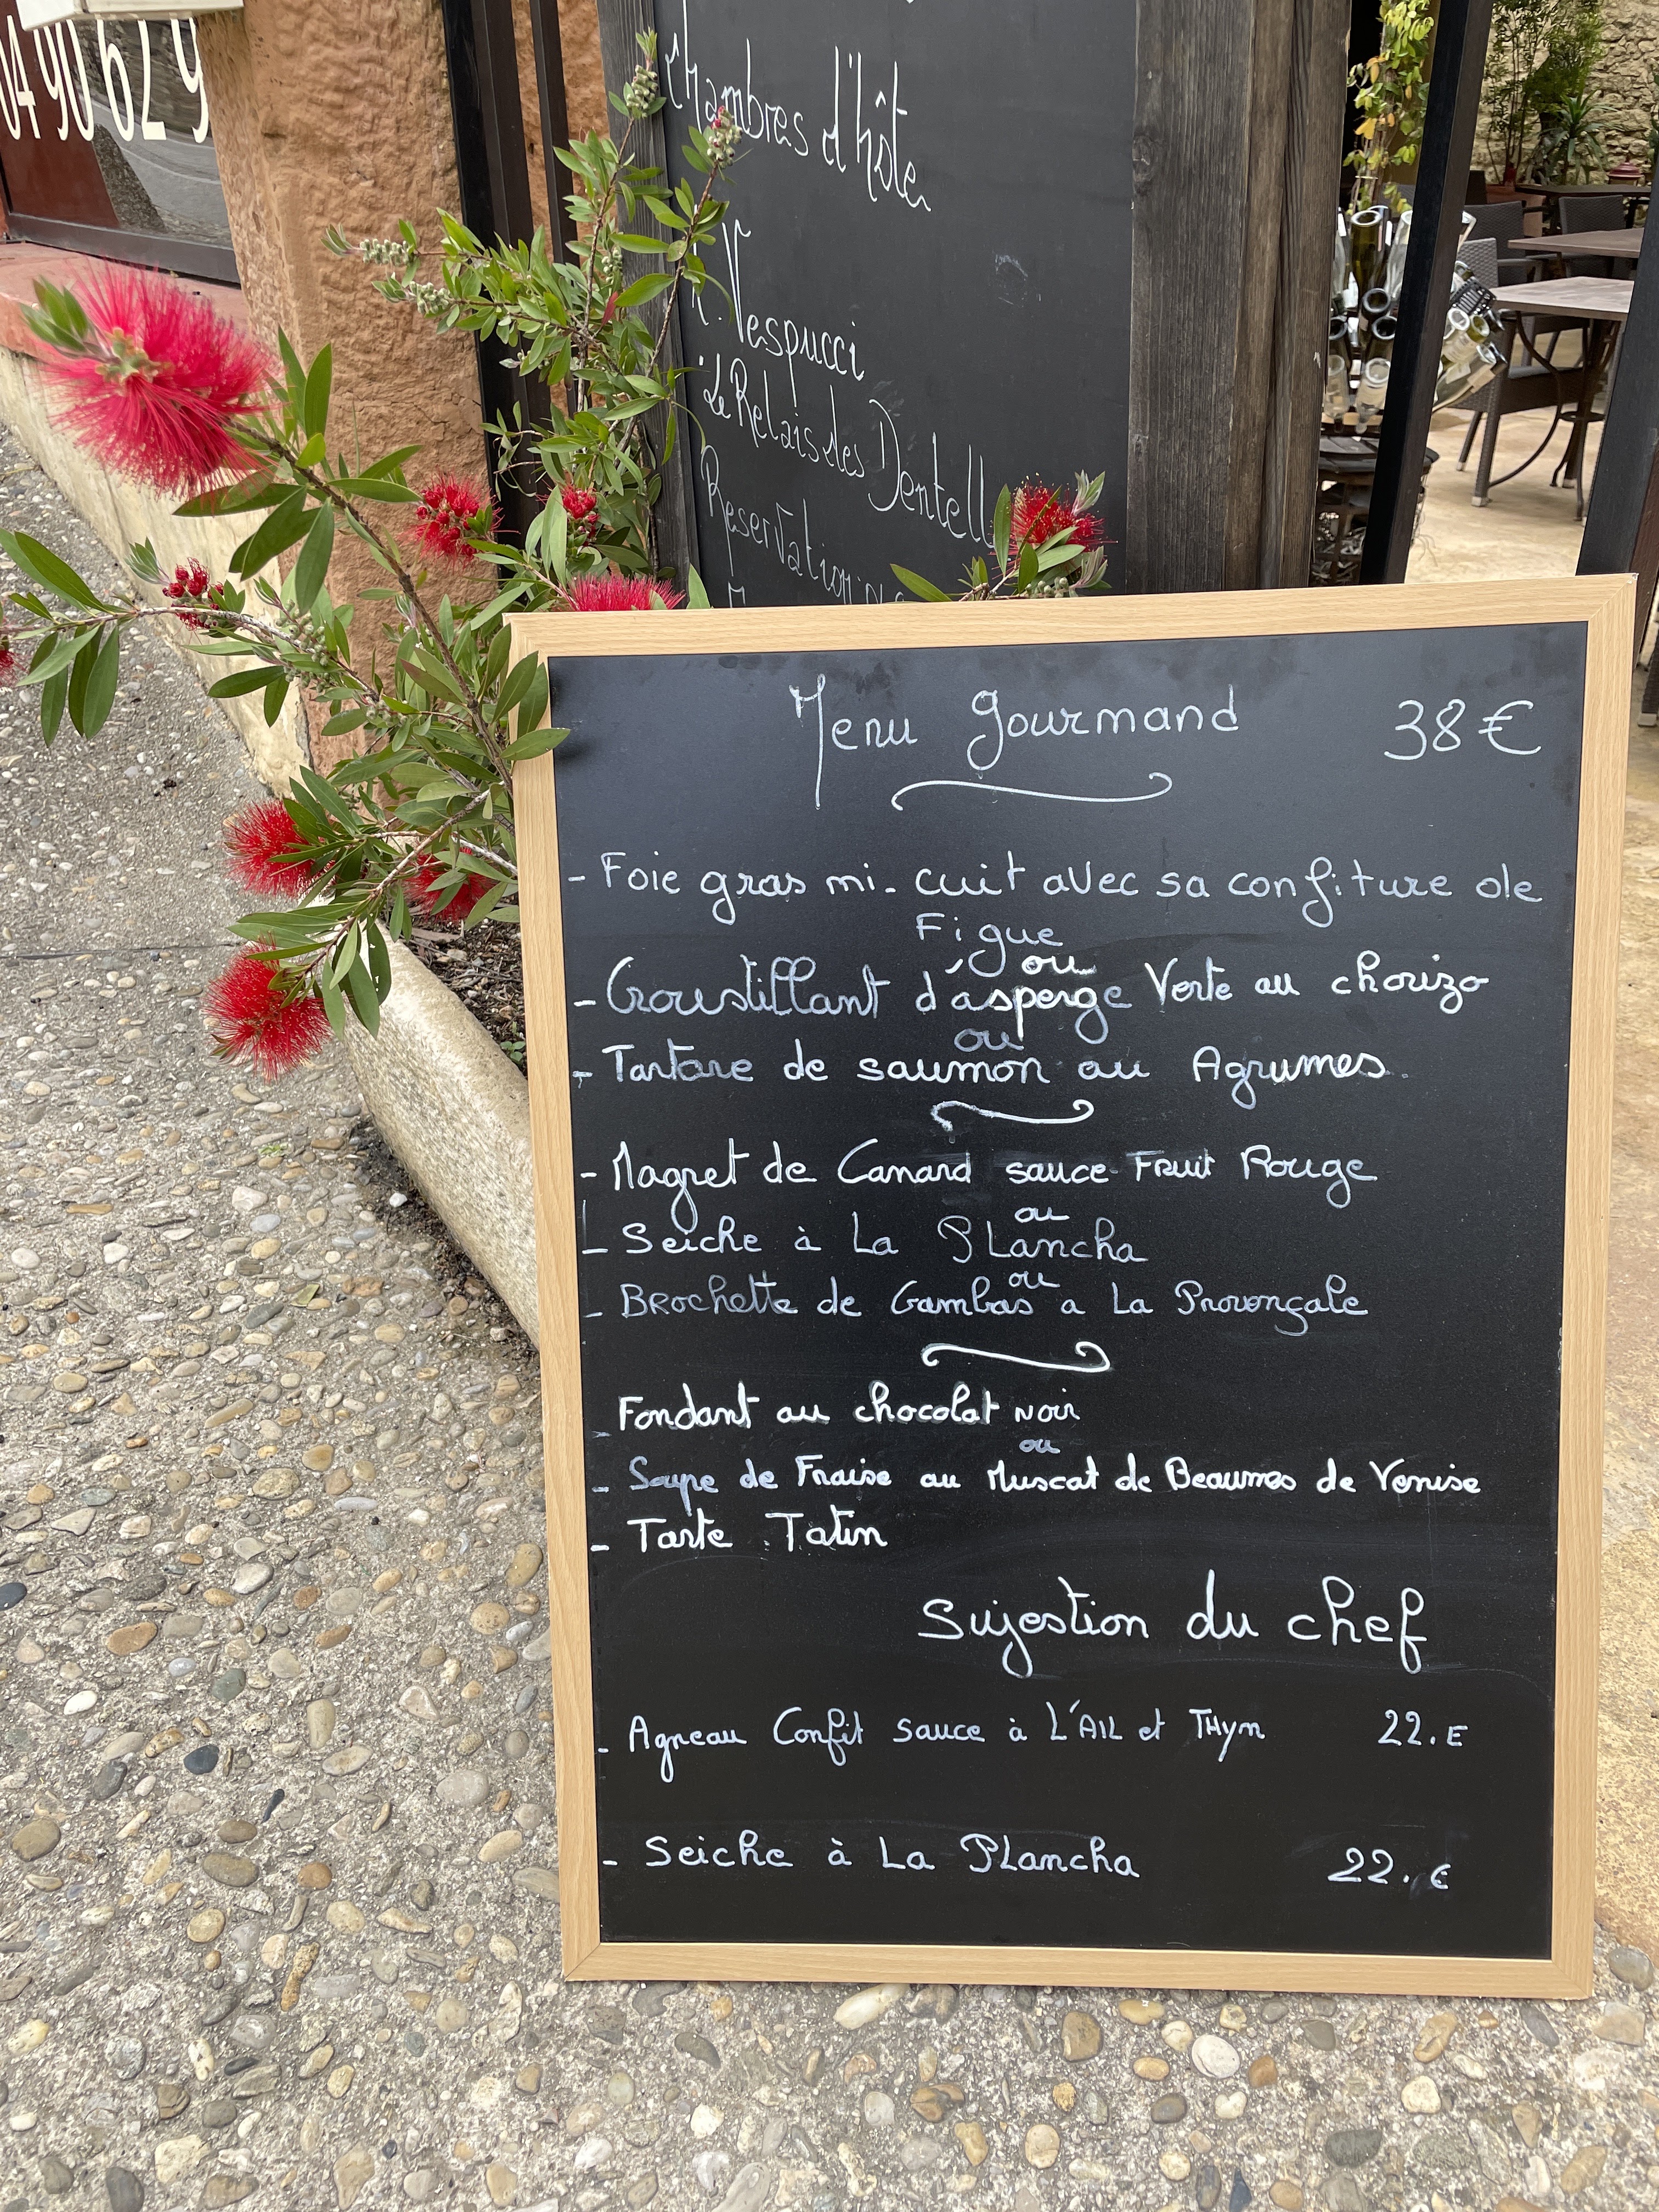 04 90 62 9
Chambres d'hôte
R. Vespucci
Le Relais des Dentell
Reservation
Menu Gourmand 38€
- Foie gras mi-cuit avec sa confiture de
Figue
ou
- Croustillant d'asperge Verte au chorizo
ou
- Tartare de saumon au Agrumes.
- Magret de Canard sauce Fruit Rouge
ou
- Seiche à La PLancha
ou
- Brochette de Gambas a La Provençale
- Fondant au chocolat noir
ou
- Soupe de Fraise au Muscat de Beaumes de Venise
- Tarte Tatin
Sujestion du chef
- Agneau Confit sauce à L'AIL et THym 22.E
- Seiche à La PLancha 22.€